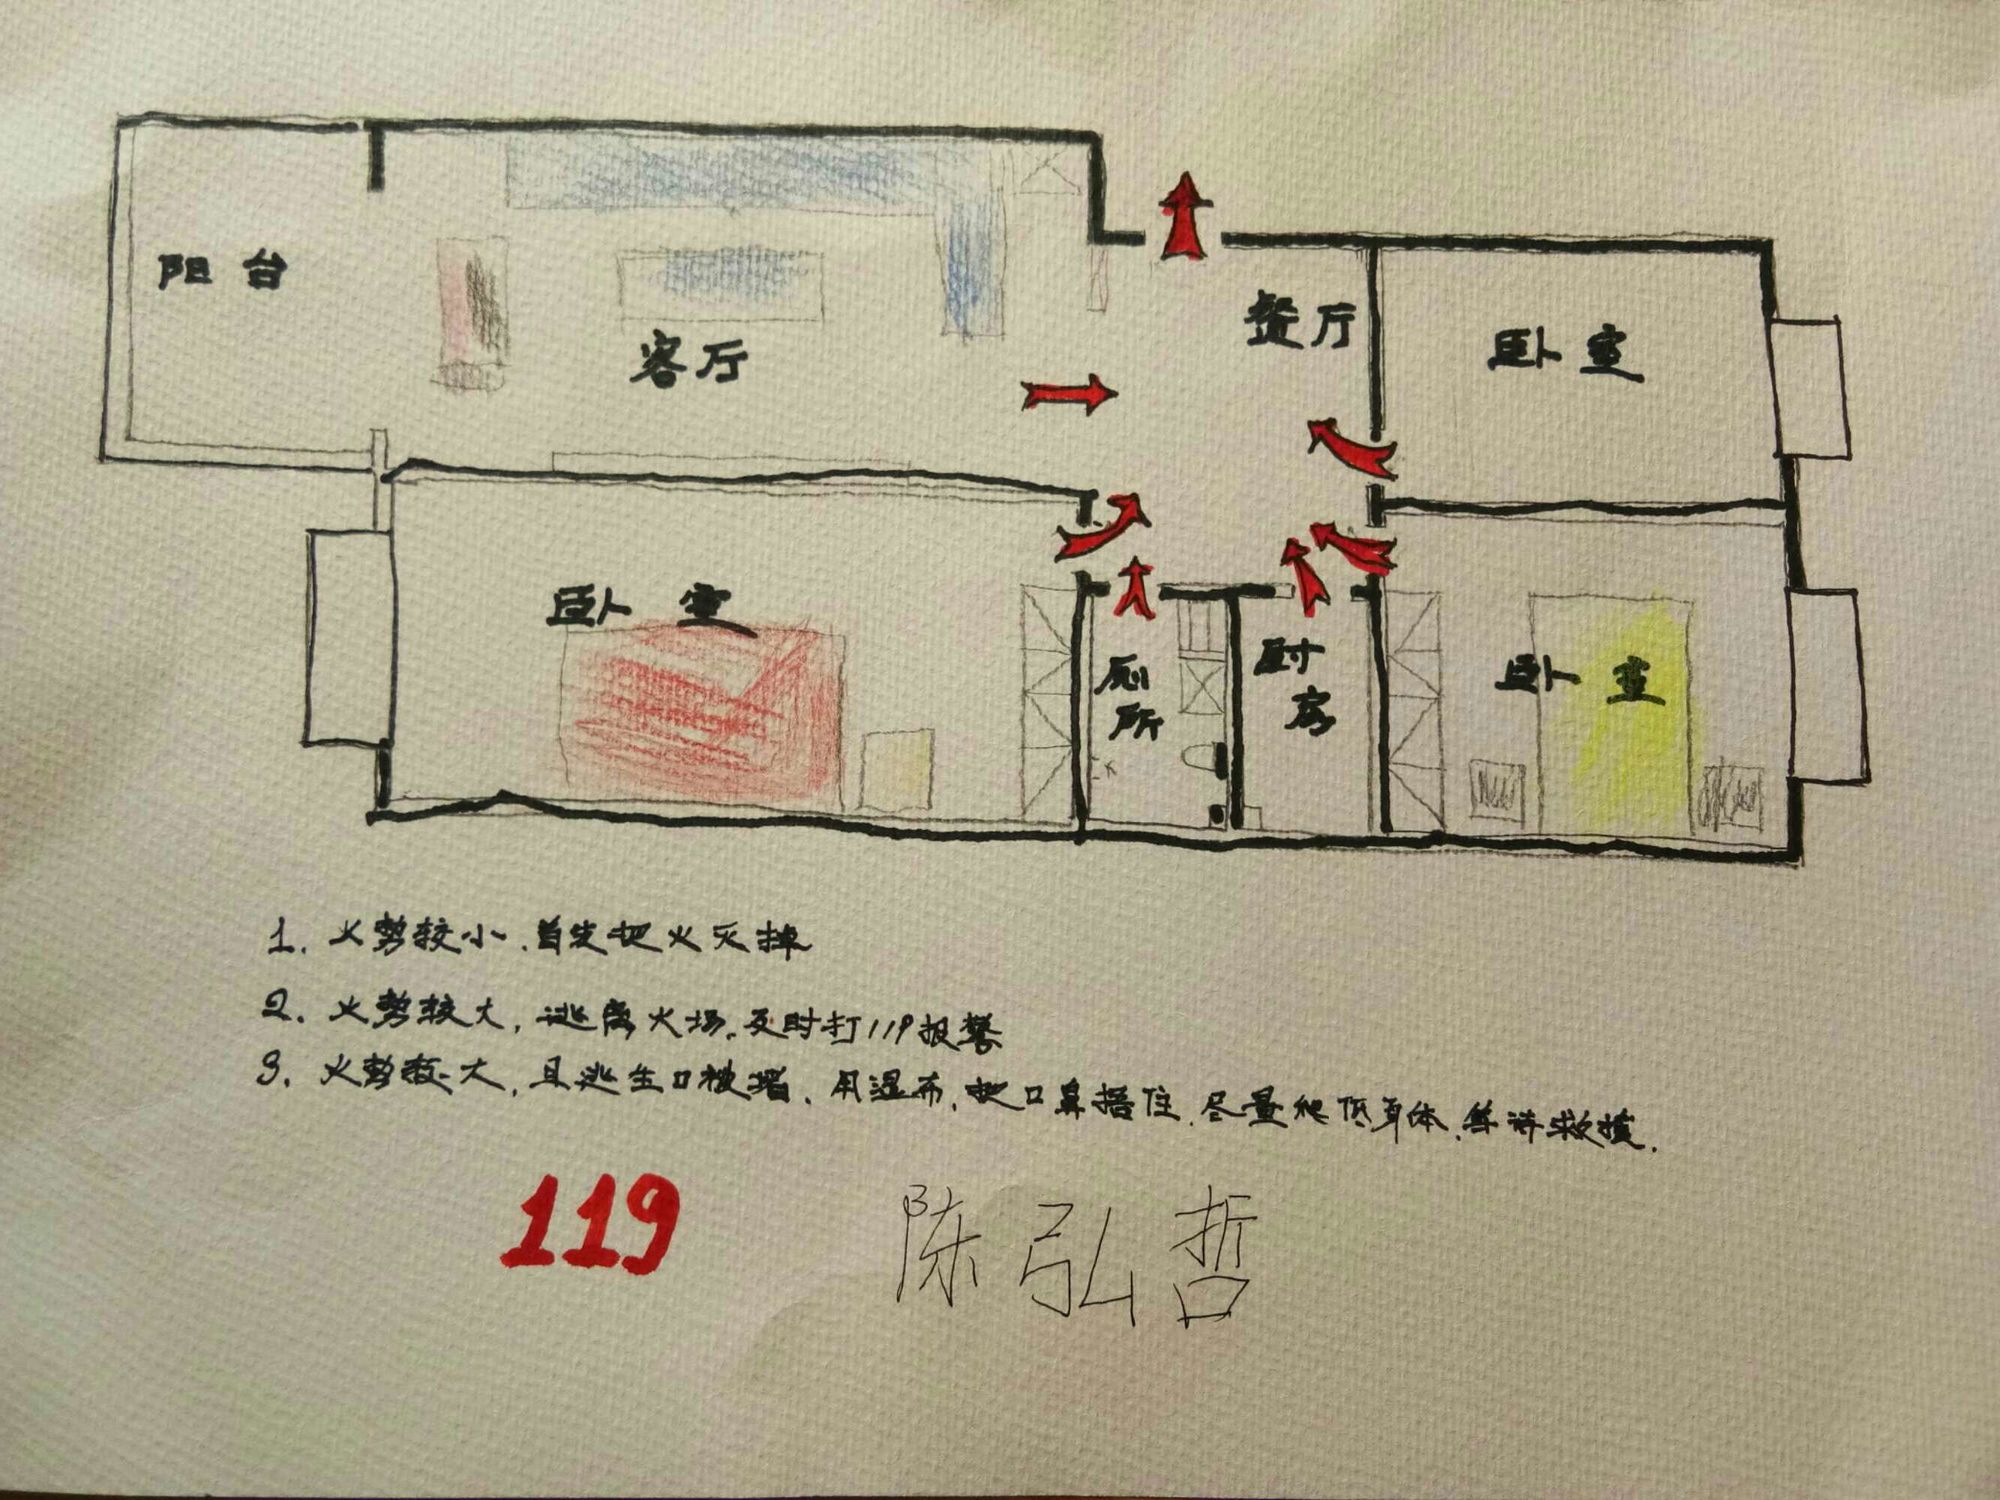 阳台
客厅
餐厅
卧室
卧室
厕所
厨房
卧室
1. 火势较小.首先把火灭掉
2. 火势较大,逃离火场.及时打119报警
3. 火势较大,且逃生口被堵、用湿布,把口鼻捂住.尽量爬低身体.等待救援.
119
陈弘哲